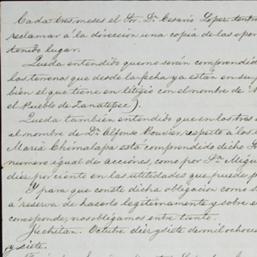 Cada tres meses el Sr. Dn Cesario Lopez tentr
reclamar a la direcion una copia de las oper
tenido lugar.
Queda entendido que no serán comprendid
los terrenos que desde la fecha ya estan en su p
bien el que tiene en litigio con el nombre de
el Pueblo de Zanatepec).
Queda tambien entendido que en los tras
el nombre de Dn Alfonso respeto a los de
Maria Chimalapa esta comprendido dicho S
numero igual de acciones, como por Dn Migue
diez por ciento en las utilidades que puede p
Y para que conste dicha obligacion como s
á reserva de hacerlo legitimamente y sobre e
corresponde, nos obligamos entre tanto.
Juchitan. Octubre diez y siete de mil ochoci
y siete.